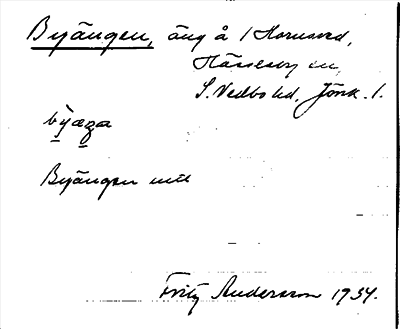 Byängen, äng å 1 Hornsved,
Hässleby sn,
S. Vedbo hd, Jönk. l.
byæga
Byängen
Fritz Andersson 1934.